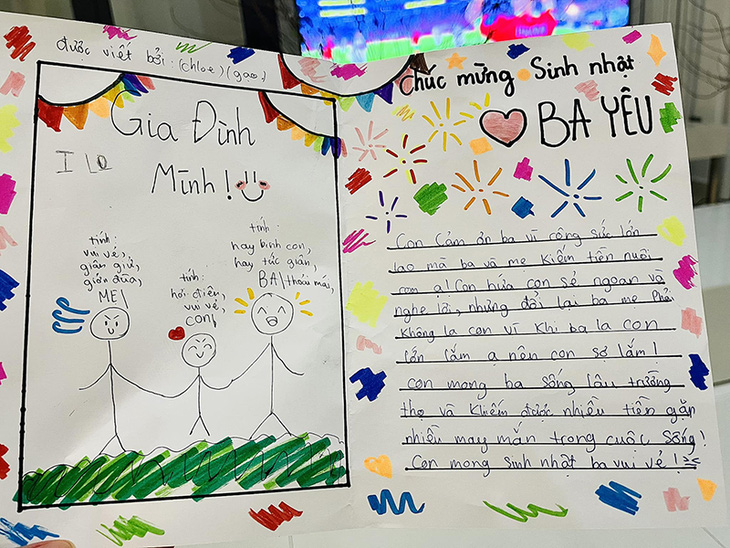 được viết bởi: (chloe) (gạo)
Gia Đình
I LO
Mình!
tính:
vui vẻ,
giận giữ,
giỡn đùa,
MẸ
tính:
hơi điệu,
vui vẻ,
con
tính:
hay binh con,
hay tức giận,
BA thoải mái,
Chúc mừng Sinh nhật
BA YÊU
Con Cảm ơn ba vì công sức lớn
lao mà ba và mẹ kiếm tiền nuôi
con ạ! Con hứa con sẽ ngoan và
nghe lời, nhưng đổi lại ba mẹ phải
không la con vì khi ba la con
lớn lắm ạ nên con sợ lắm!
con mong ba sống lâu trường
thọ và khiếm được nhiều tiền gặp
nhiều may mắn trong cuộc sống!
Con mong sinh nhật ba vui vẻ!